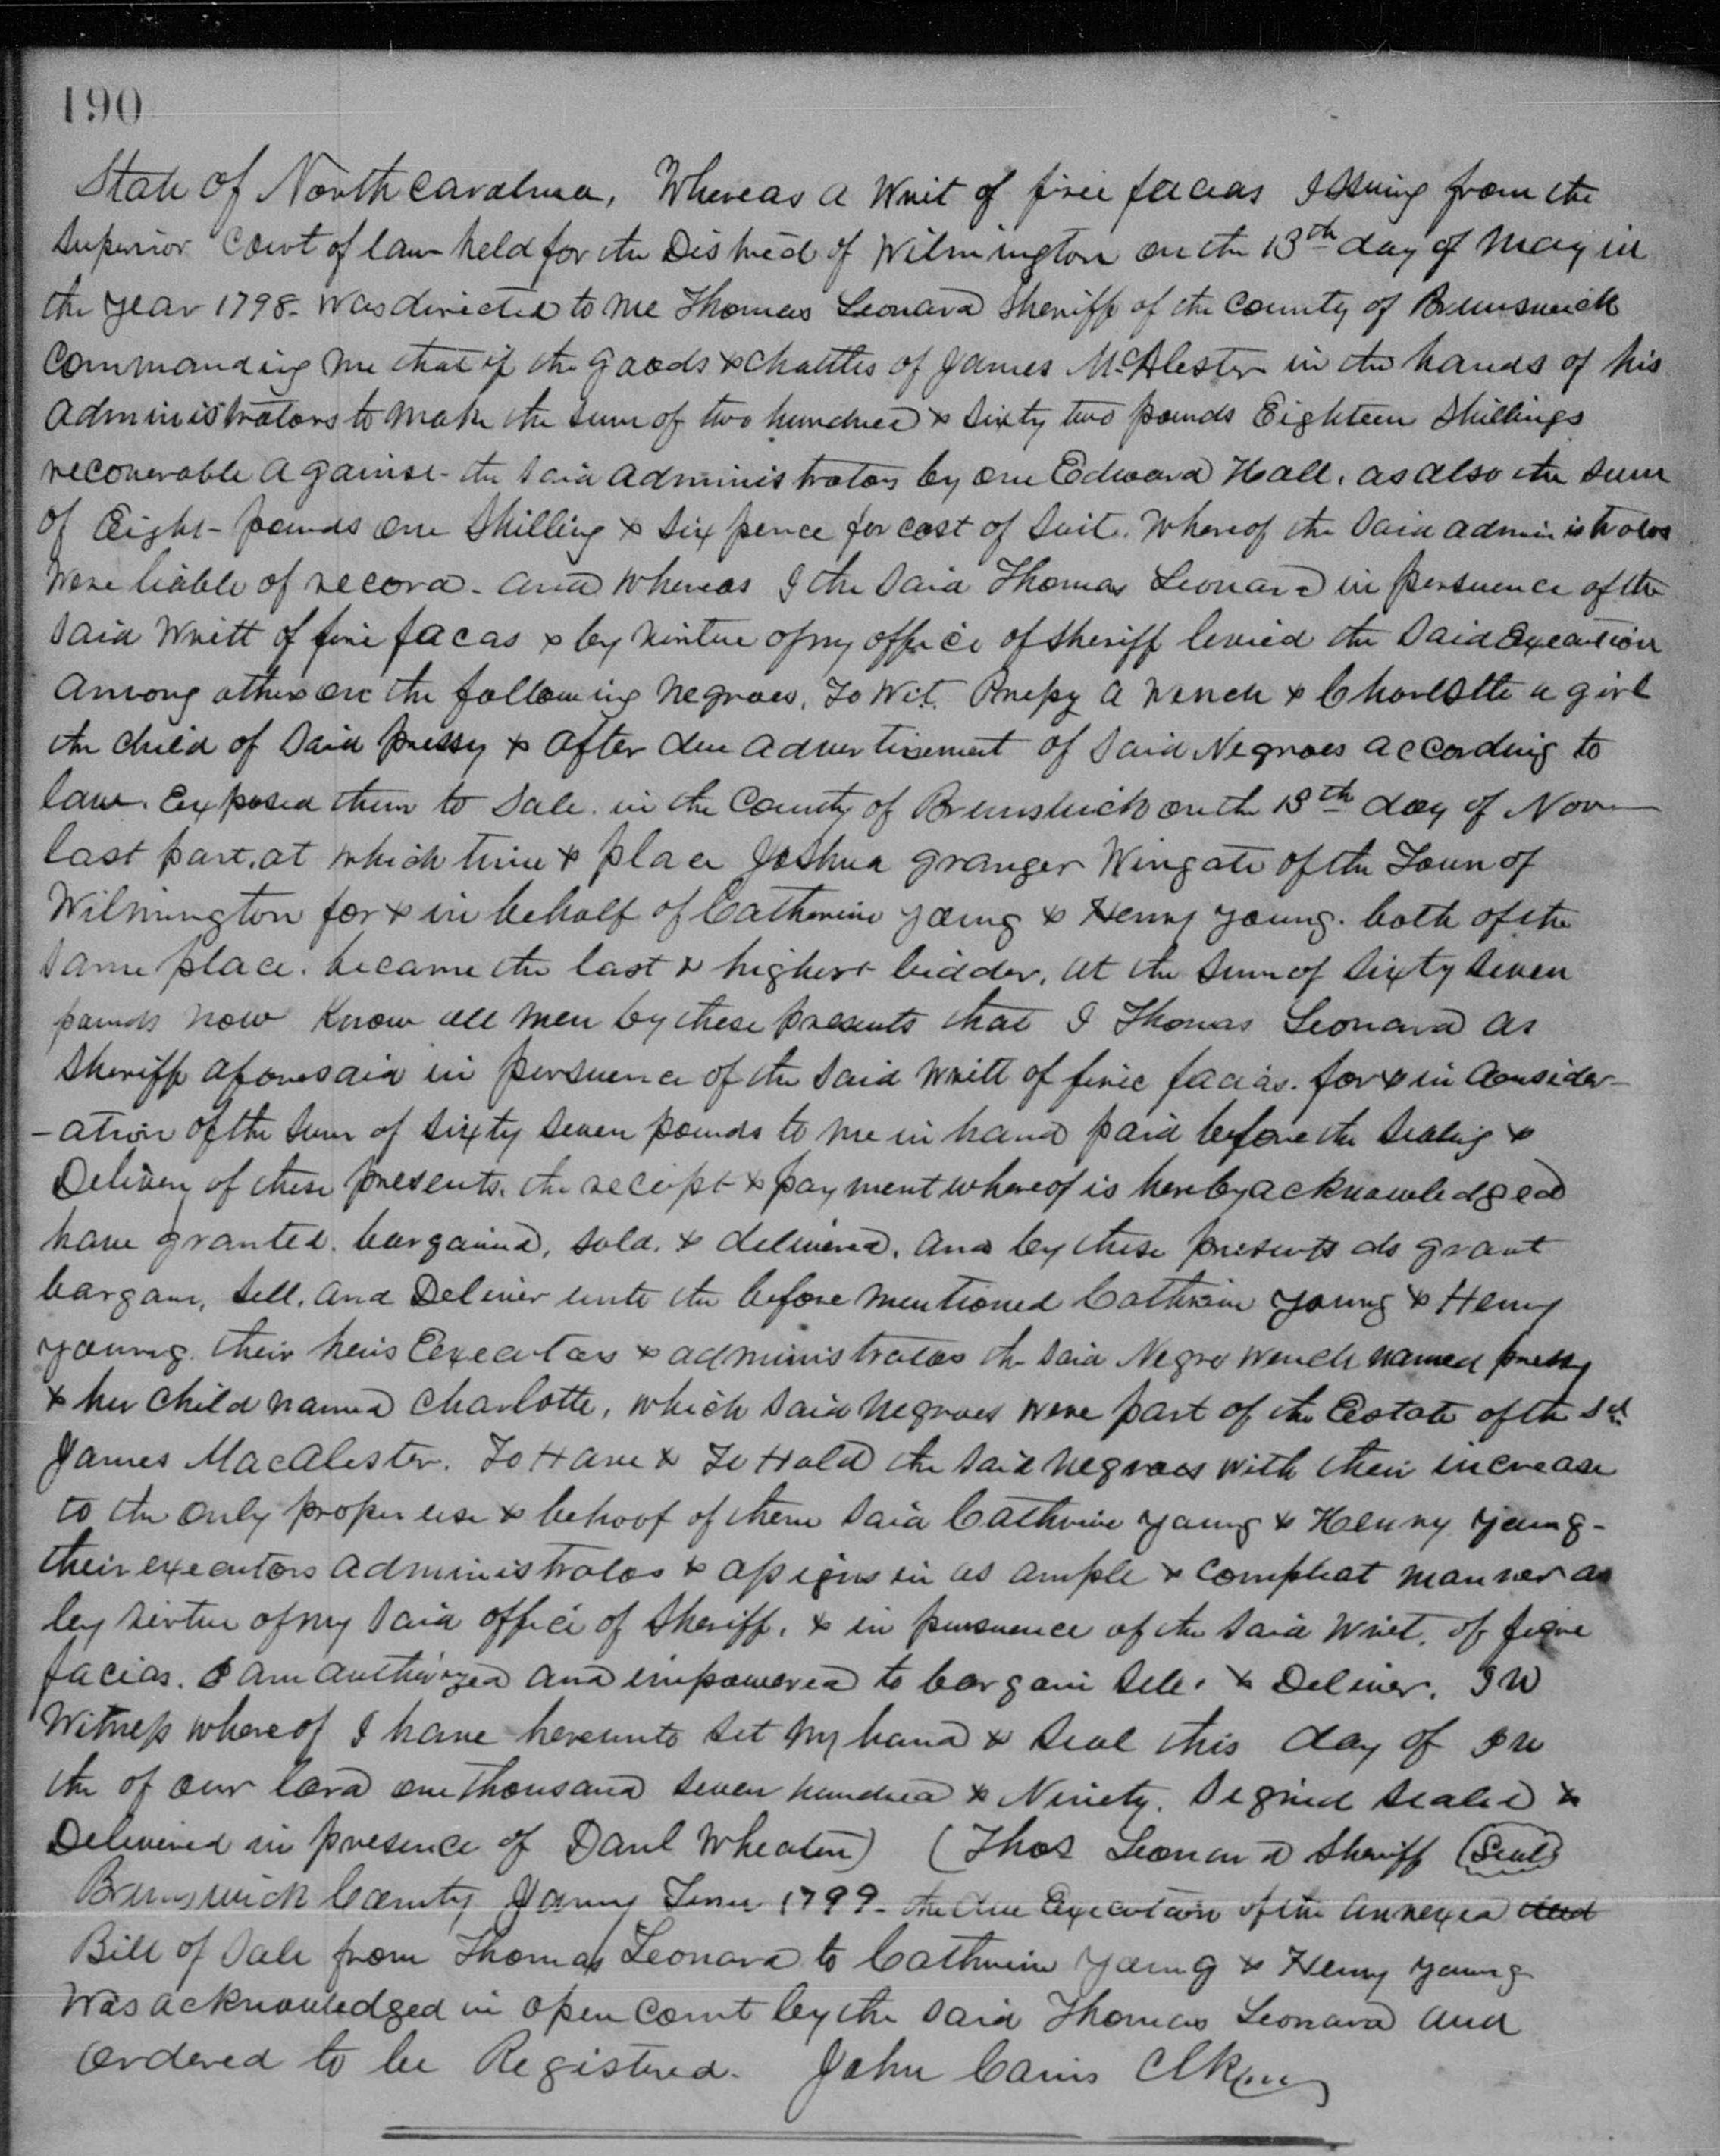 190
State of North Carolina, Whereas a Writ of firie facias Issuing from the
Superior Court of law held for the District of Wilmington on the 13th day of May in
the year 1798. Was directed to me Thomas Leonard Sheriff of the County of Brunswick
Commanding me that of the goods & chattles of James McAlester in the hands of his
Administrators to make the sum of two hundred & sixty two pounds Eighteen Shillings
recoverable against the said administrators by one Edward Hall, as also the sum
of Eight pounds one Shilling & six pence for cost of Suit. Whereof the said administrators
were liable of record. and whereas I the said Thomas Leonard in persuence of the
said Writt of firie facas & by virtue of my office of Sheriff levied the said Execution
among others on the following negroes, To Wit. a wench & Charlotte a girl
the child of said pressy & after due advertisement of said Negroes according to
law. Exposed them to Sale. in the County of Brunswick on the 13th day of Nov
last past, at which time & place Joshua granger Wingate of the Town of
Wilmington for & in behalf of Catherine young & Henry young. both of the
same place. became the last & highest bidder, at the sum of Sixty Seven
pounds now Know all men by these presents that I Thomas Leonard as
Sheriff aforesaid in persuence of the said Writt of firie facias. for & in Consider-
-ation of the sum of sixty seven pounds to me in hand paid before the Sealing &
Delivery of these presents. the receipt & payment whereof is hereby acknowledged
have granted. bargained, sold. & delivered. and by these presents do grant
bargain, sell, and Deliver unto the before mentioned Cathrine young & Henry
young. their heirs Executors & administrators the said Negro wench named pressy
& her child named Charlotte, which said negroes were part of the Estate of the sd.
James MacAlester. To Have & To Hold the said negroes with their increase
to the only proper use & behoof of them said Cathrine young & Henry young-
their executors administrators & assigns in as ample & compleat manner as
by virtue of my said office of Sheriff, & in pursuence of the said Writ. of fiere
facias. I am authorized and impowered to bargain sell. & Deliver. In
Witness whereof I have hereunto set my hand & seal this day of In
the of our lord one thousand seven hundred & Ninety. Signed sealed &
Delivered in presence of Danl Wheaton) (Thos Leonard Sheriff (Seal)
Brunswick County Janry Term 1799. the due Execution of the annexed deed
Bill of Sale from Thomas Leonard to Cathrine young & Henry young
was acknowledged in open Court by the said Thomas Leonard and
Ordered to be Registered. John Cains